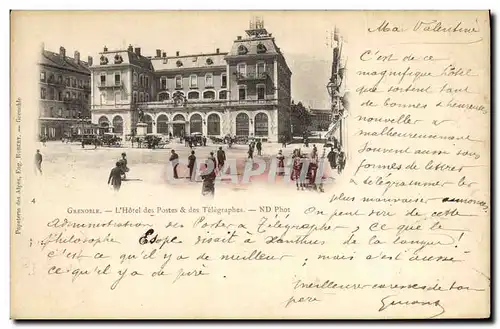 Ma Valentine
C'est de ce
magnifique hôtel
que sortent tant
de bonnes & heureuses
nouvelles &
malheureusement
souvent aussi sous
formes de lettres
& télégrammes les
plus mauvaises annonces.
On peut dire de cette
administration des Postes & Télégraphes, ce que le
philosophe Esope disait à Xanthus de la langue!
c'est ce qu'il y a de meilleur, mais c'est aussi
ce qu'il y a de pire.
Meilleures caresses de ton
père
GRENOBLE. — L'Hôtel des Postes & des Télégraphes. — ND Phot
4
Papeterie des Alpes, Eug. ROBERT. — Grenoble
CPARAMA